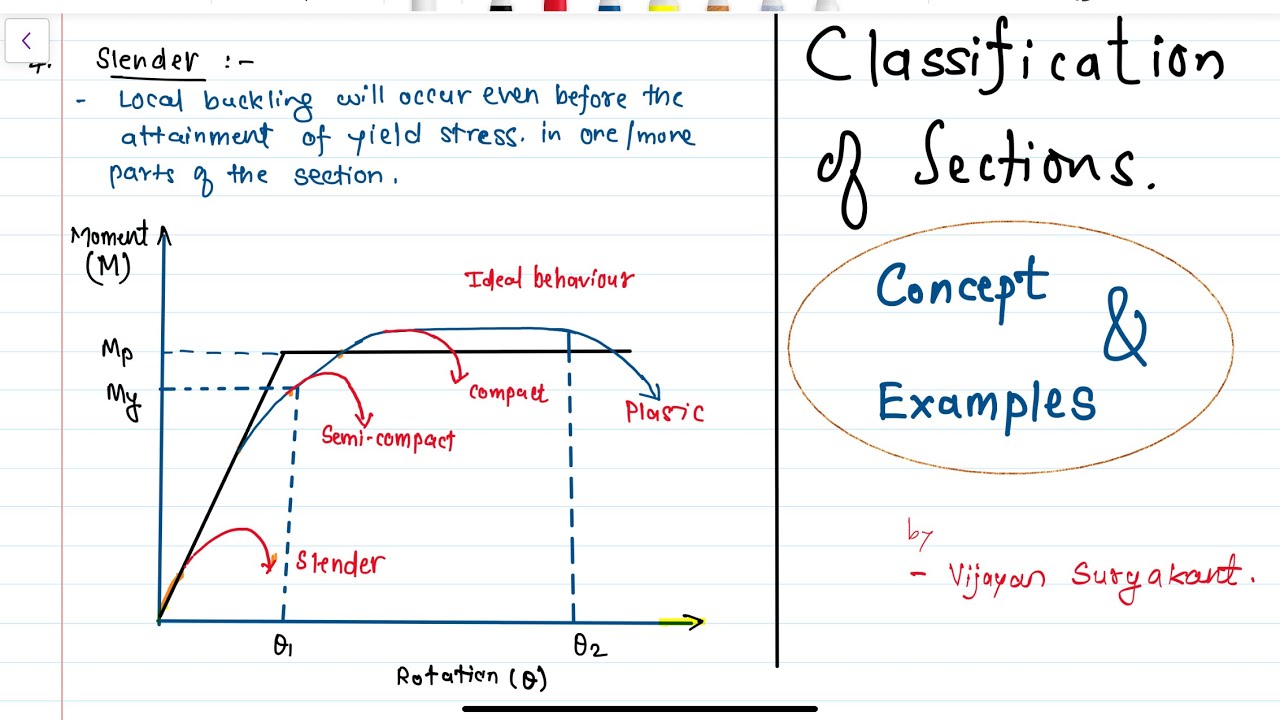 4. Slender :-
- Local buckling will occur even before the
attainment of yield stress. in one/more
parts of the section.
Moment
(M)
Ideal behaviour
Mp
My
Compact
Plastic
Semi-compact
Slender
θ1
θ2
Rotation (θ)
Classification
of Sections.
Concept
&
Examples
by
- Vijayan Suryakant.